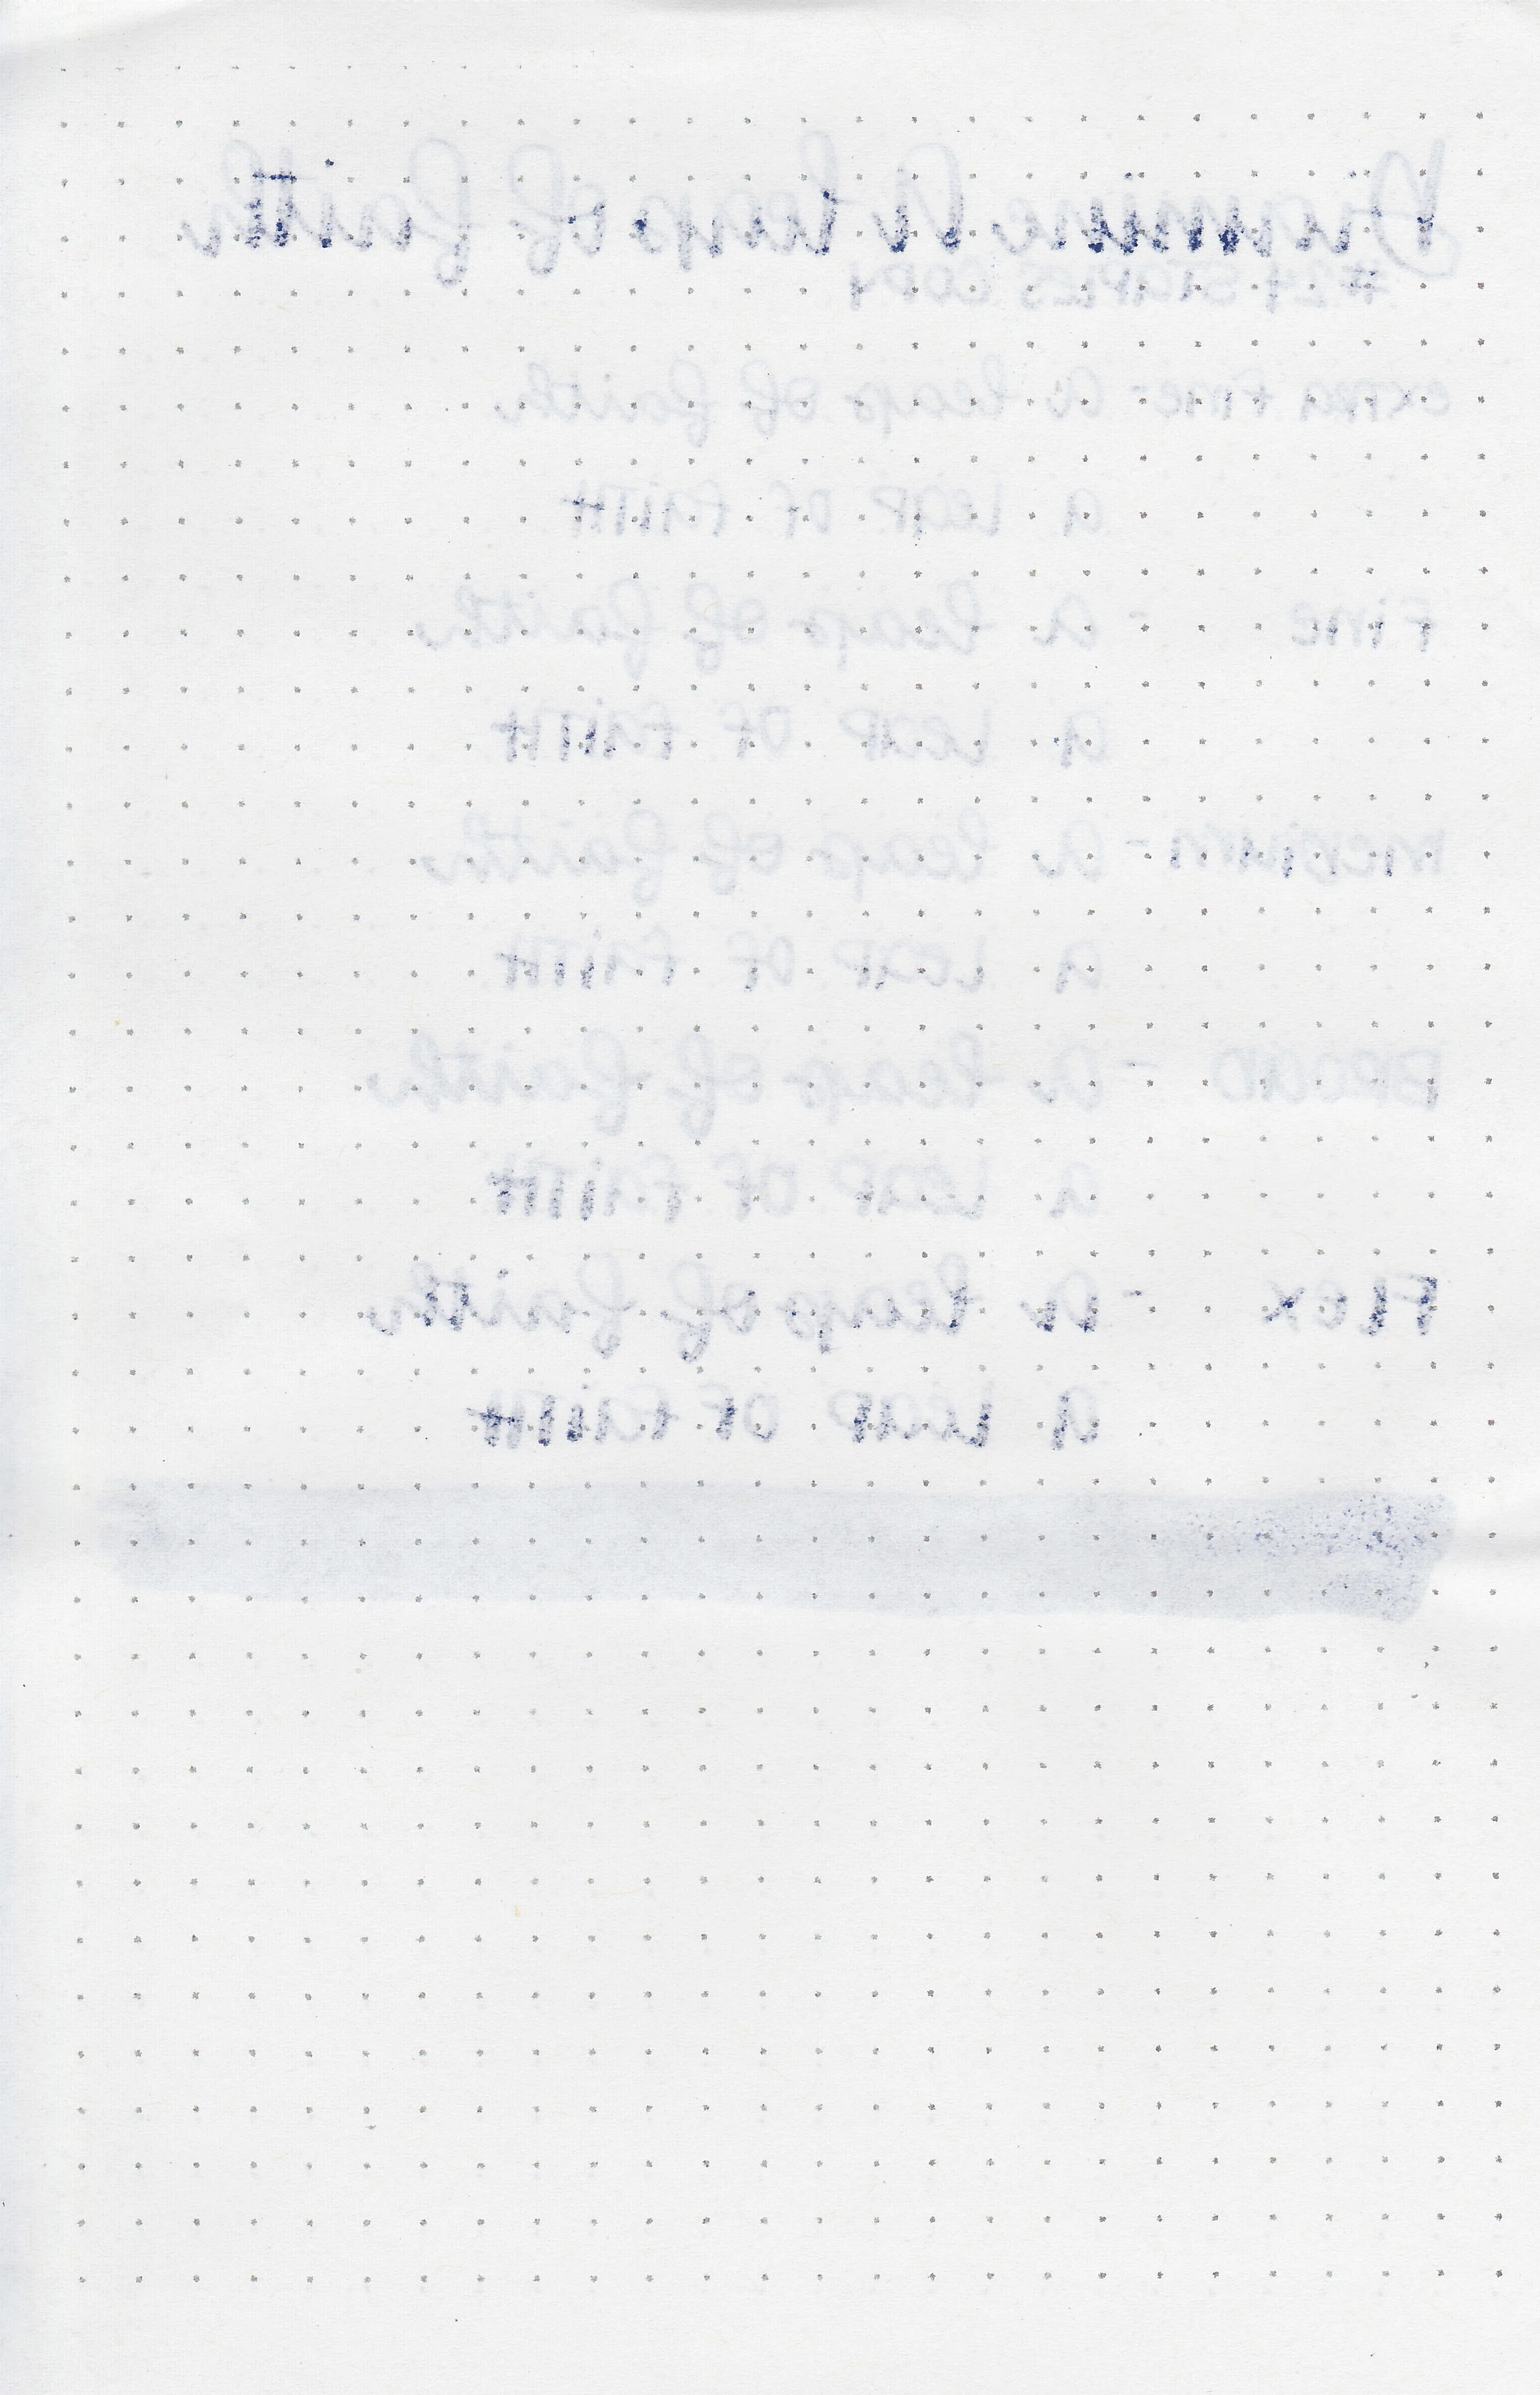 Diamine A leap of faith
#24 STAPLES COPY
EXTRA FINE - A leap of faith
A LEAP OF FAITH
FINE - A leap of faith
A LEAP OF FAITH
MEDIUM - A leap of faith
A LEAP OF FAITH
BROAD - A leap of faith
A LEAP OF FAITH
FLEX - A leap of faith
A LEAP OF FAITH